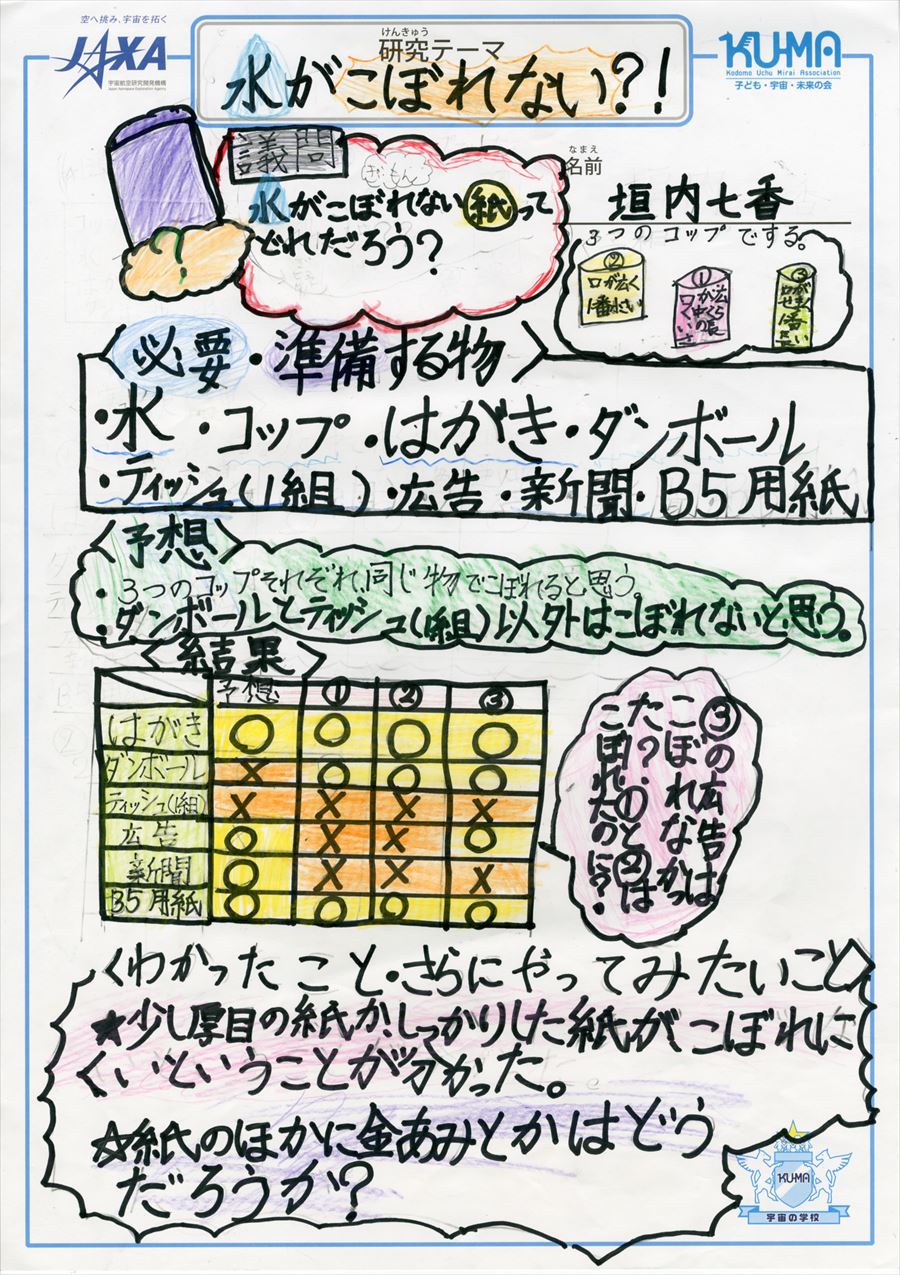 空へ挑み、宇宙を拓く
JAXA
宇宙航空研究開発機構
Japan Aerospace Exploration Agency
けんきゅう
研究テーマ
水がこぼれない?!
KU-MA
Kodomo Uchu Mirai Association
子ども・宇宙・未来の会
議問
ぎもん
水がこぼれない紙って
どれだろう?
なまえ
名前
垣内七香
3つのコップでする。
②
口が広く
1番小さい
①
③
〈必要・準備する物〉
・水・コップ・はがき・ダンボール
・ティッシュ(1組)・広告・新聞・B5用紙
〈予想〉
・3つのコップそれぞれ、同じ物でこぼれると思う。
・ダンボールとティッシュ(1組)以外はこぼれないと思う。
〈結果〉
予想 ① ② ③
はがき ○ ○ ○ ○
ダンボール × ○ ○ ○
ティッシュ(1組) × × × ×
広告 ○ × × ○
新聞 ○ × × ×
B5用紙 ○ ○ ○ ○
③の広告は
こぼれなかっ
た?①と②は
こぼれたのに?
〈わかったこと・さらにやってみたいこと〉
★少し厚目の紙か、しっかりした紙がこぼれに
くいということが分かった。
☆紙のほかに金あみとかはどう
だろうか?
KU-MA
宇宙の学校